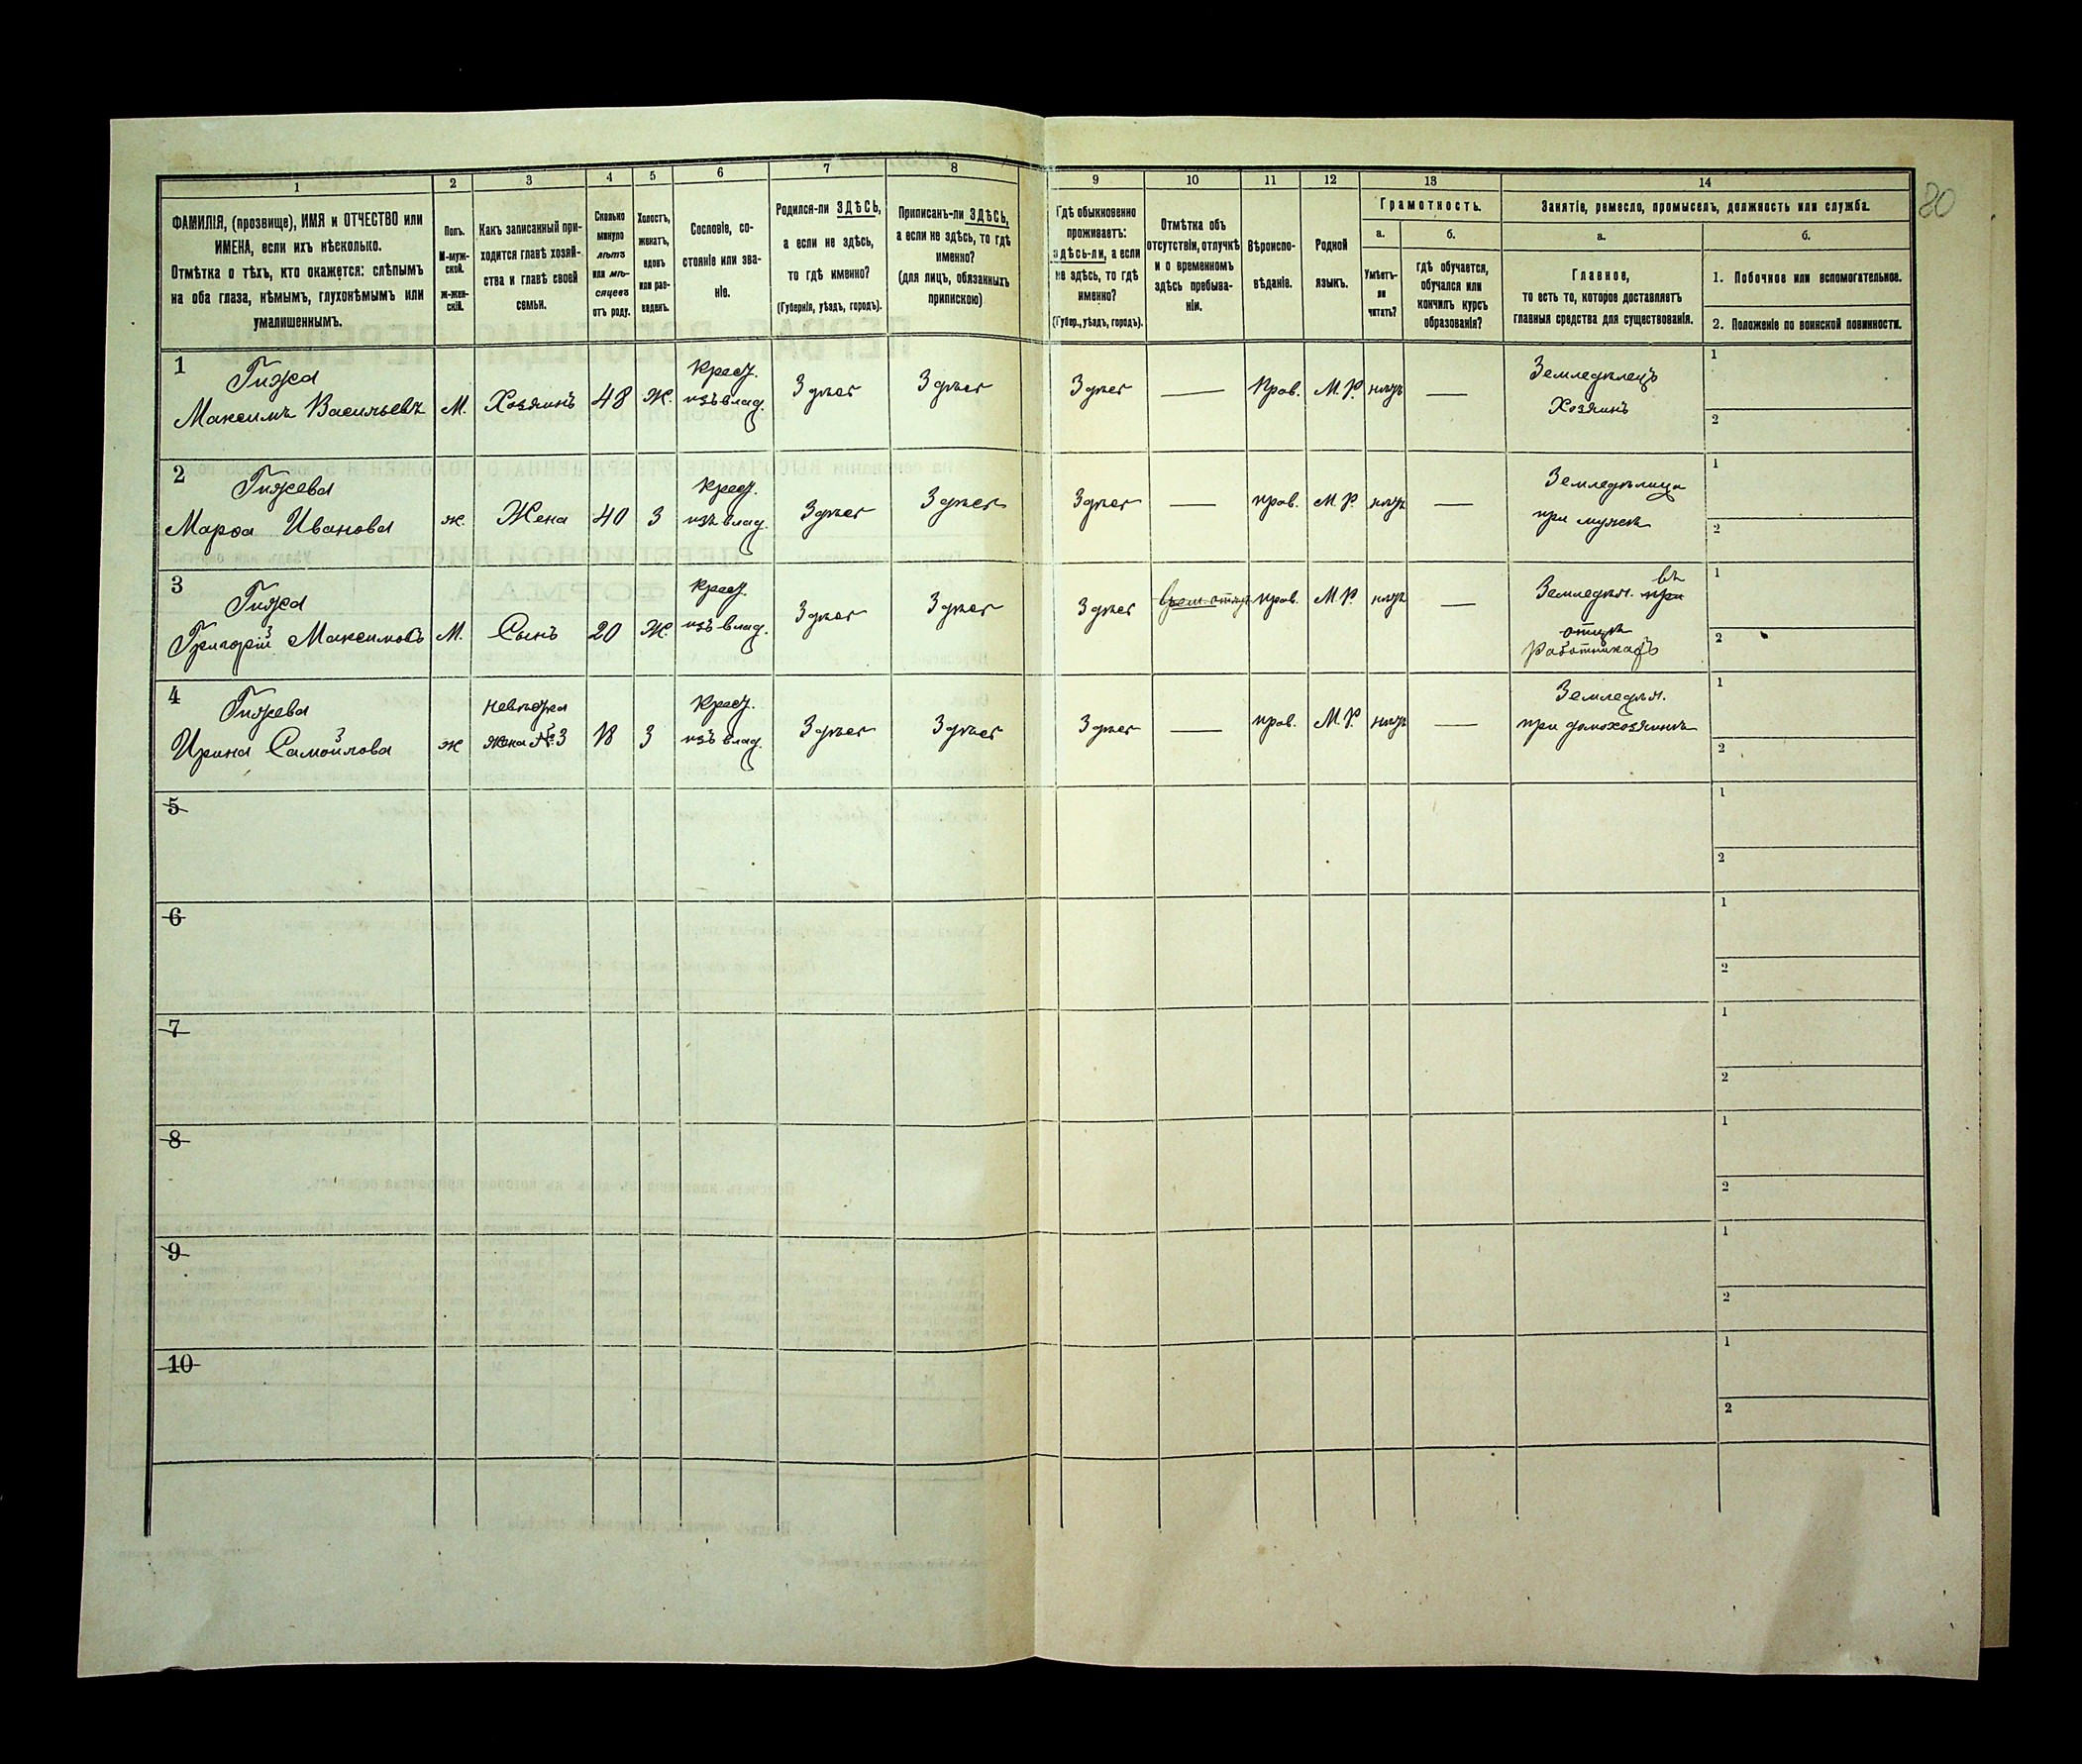 1 2 3 4 5 6 7 8 9 10 11 12 13 14
ФАМИЛІЯ, (прозвище), ИМЯ и ОТЧЕСТВО или
ИМЕНА, если ихъ нѣсколько.
Отмѣтка о тѣхъ, кто окажется: слѣпымъ
на оба глаза, нѣмымъ, глухонѣмымъ или
умалишеннымъ.
Полъ.
М-муж-
ской.
Ж-жен-
скій.
Какъ записанный при-
ходится главѣ хозяй-
ства и главѣ своей
семьи.
Сколько
минуло
лѣтъ
или мѣ-
сяцевъ
отъ роду.
Холостъ,
женатъ,
вдовъ
или раз-
веденъ.
Сословіе, со-
стояніе или зва-
ніе.
Родился-ли ЗДѢСЬ,
а если не здѣсь,
то гдѣ именно?
(Губернія, уѣздъ, городъ).
Приписанъ-ли ЗДѢСЬ,
а если не здѣсь, то гдѣ
именно?
(для лицъ, обязанныхъ
припискою)
Гдѣ обыкновенно
проживаетъ:
здѣсь-ли, а если
не здѣсь, то гдѣ
именно?
(Губер., уѣздъ, городъ).
Отмѣтка объ
отсутствіи, отлучкѣ
и о временномъ
здѣсь пребыва-
ніи.
Вѣроиспо-
вѣданіе.
Родной
языкъ.
Грамотность.
а.
Умѣетъ-
ли
читать?
б.
гдѣ обучается,
обучался или
кончилъ курсъ
образованія?
Занятіе, ремесло, промыселъ, должность или служба.
а.
Главное,
то есть то, которое доставляетъ
главныя средства для существованія.
б.
1. Побочное или вспомогательное.
2. Положеніе по воинской повинности.
80
1
Гижа
Максимъ Васильевъ М. Хозяинъ 48 Ж.
Крест.
изъ влад.
Здѣсь Здѣсь Здѣсь — Прав. М.Р. нѣтъ —
Земледѣлецъ
Хозяинъ
1
2
2
Гижева
Марѳа Иванова ж. Жена 40 З
Крест.
изъ влад.
Здѣсь Здѣсь Здѣсь — прав. М.Р. нѣтъ —
Земледѣлица
при мужѣ
1
2
3
Гижа
Григорій Максимовъ М. Сынъ 20 Ж.
Крест.
изъ влад.
Здѣсь Здѣсь Здѣсь прав. М.Р. нѣтъ —
въ
Земледѣл. при
отцѣ
1
2
4
Гижева
Ирина Самойлова ж
невѣстка
жена №3 18 З
Крест.
изъ влад.
Здѣсь Здѣсь Здѣсь — прав. М.Р. нѣтъ —
Земледѣл.
при домохозяинѣ
1
2
5
1
2
6
1
2
7
1
2
8
1
2
9
1
2
10
1
2